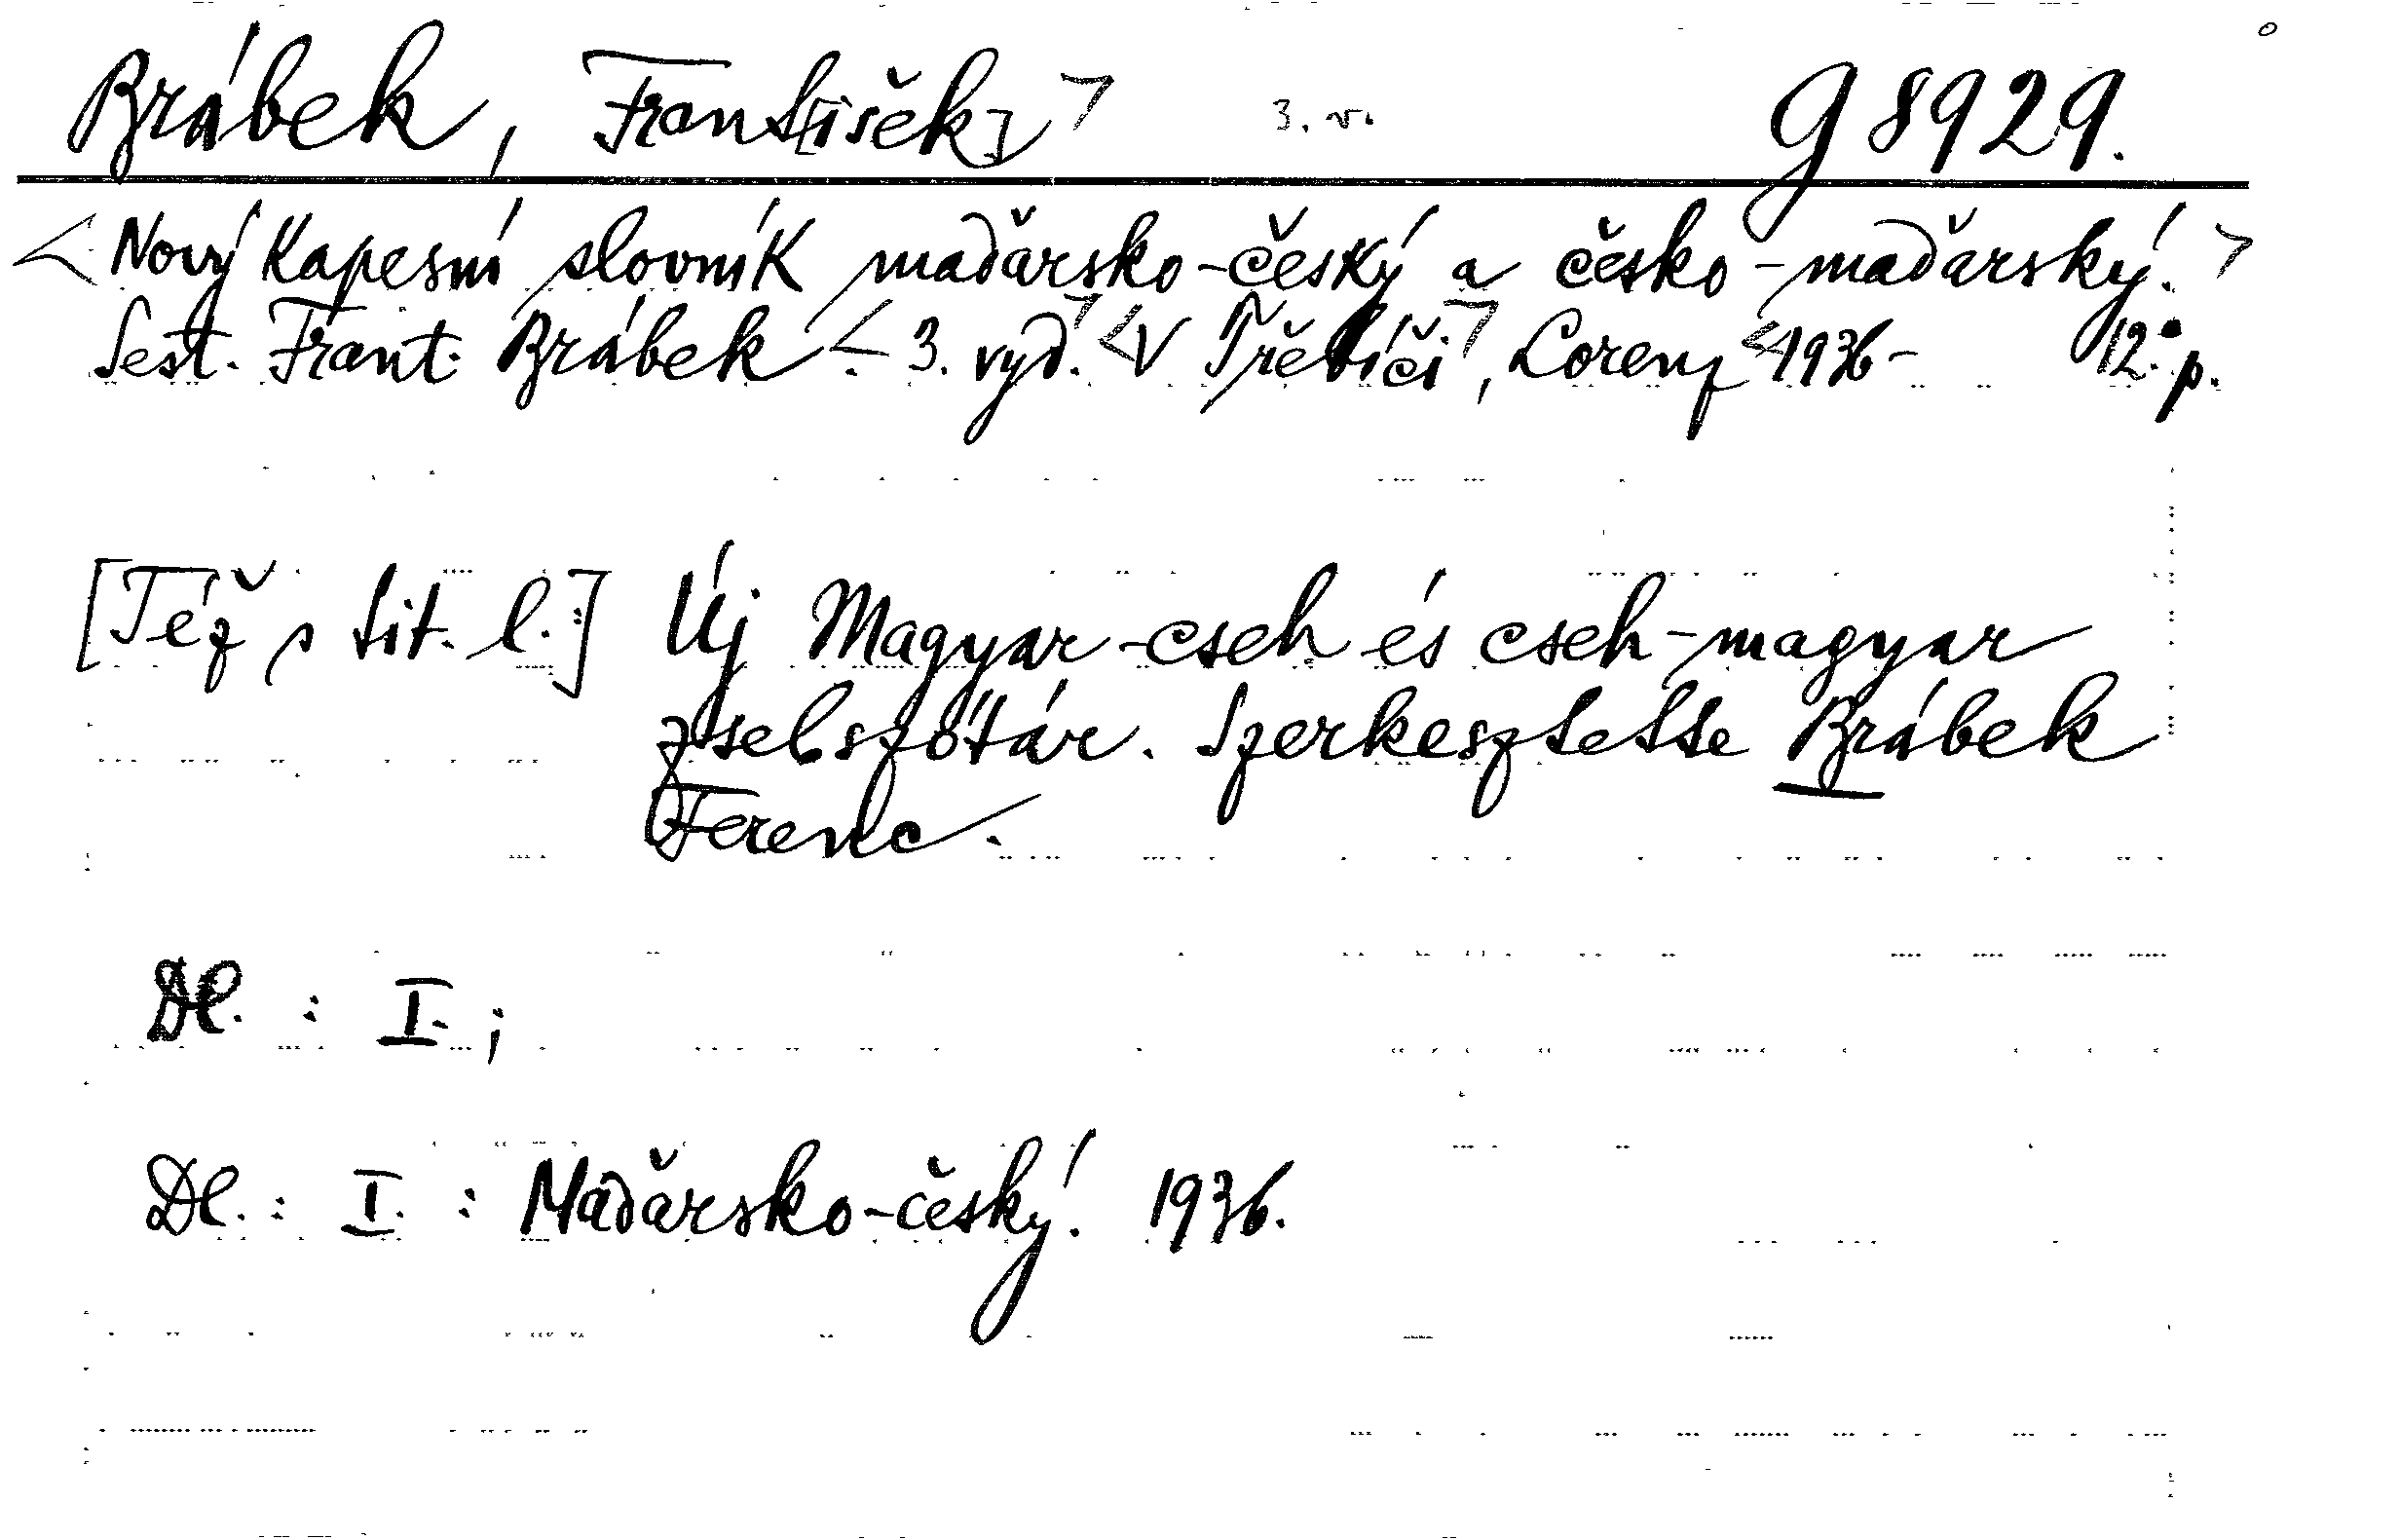 Brábek, Frant[išek] > 3. v. G 8929.
< Nový kapesní slovník maďarsko-český a česko-maďarský. >
Sest. Frant. Brábek < 3. vyd. > < V Třebíči >, Lorenz < 1936 - 12.° p.
[Též s tit. l.:] Új Magyar-cseh és cseh-magyar
zsebszótár. Szerkesztette Brábek
Ferenc.
Dl. : I. ;
Dl. : I. : Maďarsko-český. 1936.